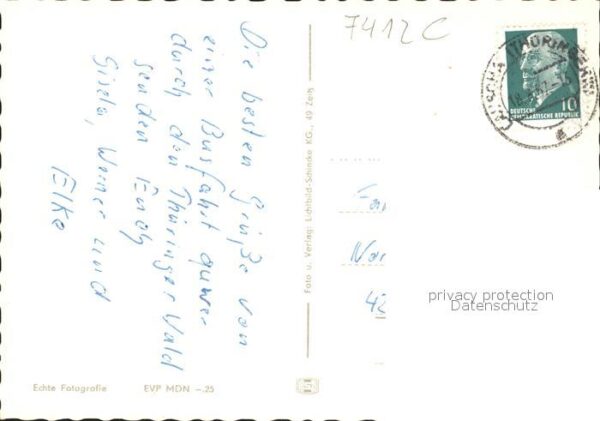 7412 C
Die besten Grüße von
einer Busfahrt quwer
durch den Thüringer Wald
senden Euch
Gisela, Werner und
Elke
Foto u. Verlag: Lichtbild-Schincke KG., 49 Zeitz
10
DEUTSCHE
DEMOKRATISCHE REPUBLIK
Fa
42
privacy protection
Datenschutz
Echte Fotografie
EVP MDN –.25